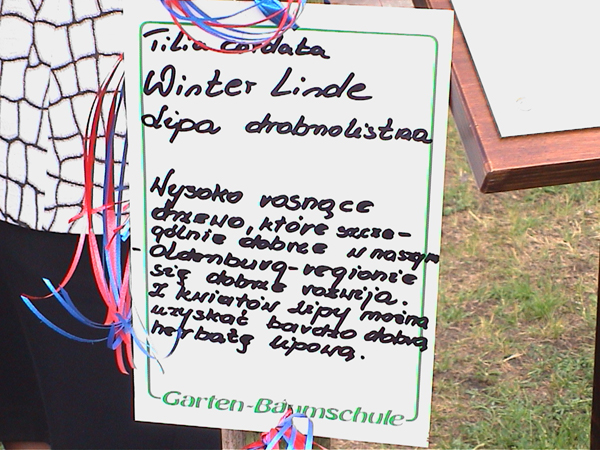 Tilia cordata
Winter Linde
Lipa drobnolistna
Wysoko rosnące
drzewo, które szcze-
gólnie dobrze w naszym
Oldenburg-regionie
się dobrze rozwija.
Z kwiatów lipy można
uzyskać bardzo dobrą
herbatę lipową.
Garten-Baumschule